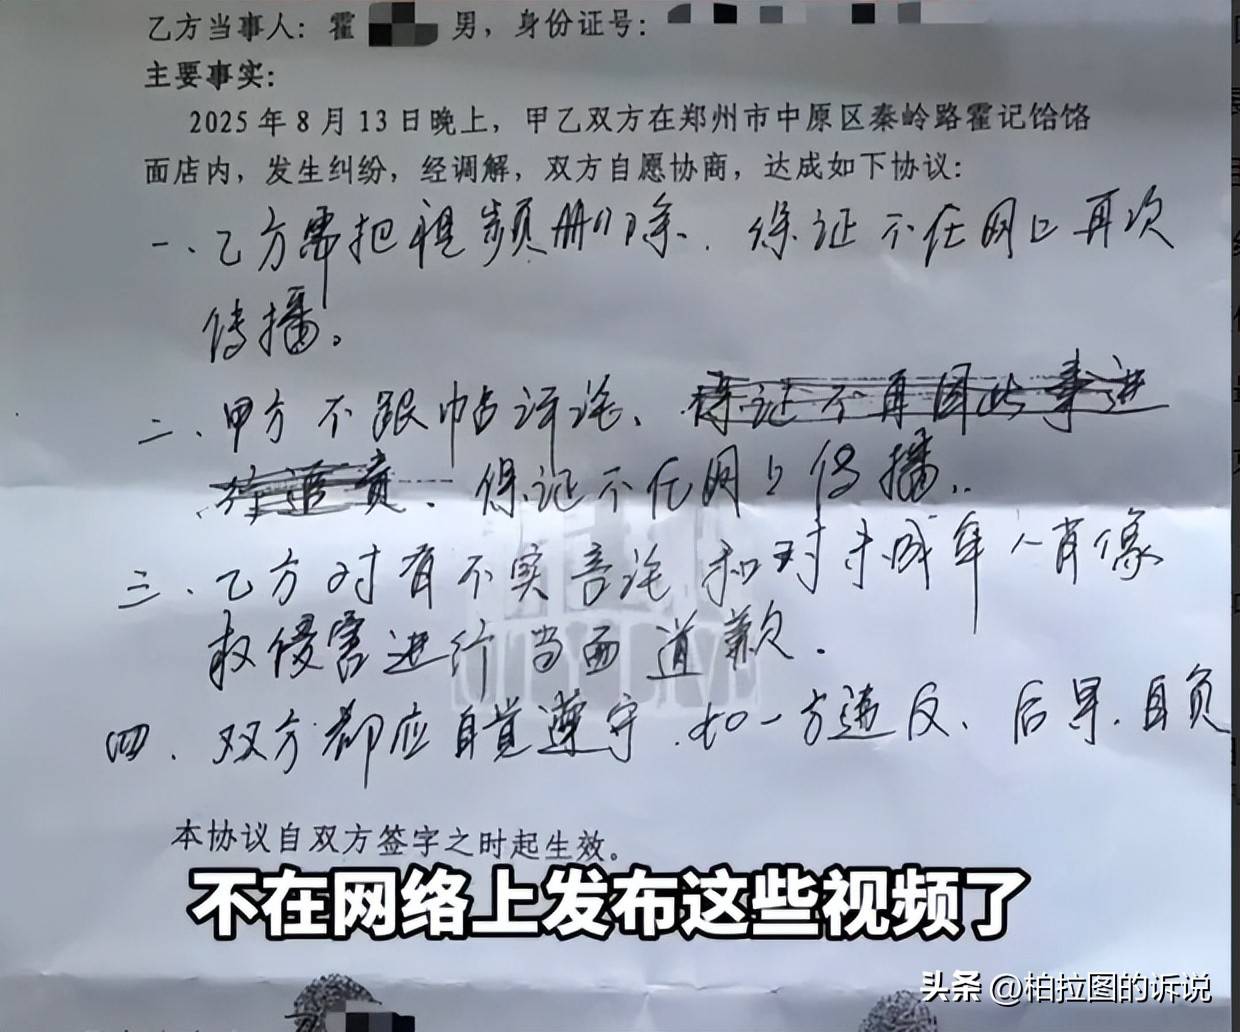 乙方当事人：霍 男，身份证号：
主要事实：
2025年8月13日晚上，甲乙双方在郑州市中原区秦岭路霍记饸饹
面店内，发生纠纷，经调解，双方自愿协商，达成如下协议：
一、乙方需把视频册除、保证不在网上再次
传播。
二、甲方不跟帖评论、保证不再因此事进
行追责、保证不在网上传播。
三、乙方对有不实言论和对未成年人肖像
权侵害进行当面道歉.
四、双方都应自觉遵守.如一方违反、后果.自负
本协议自双方签字之时起生效。
不在网络上发布这些视频了
CITY LIVE
头条 @柏拉图的诉说